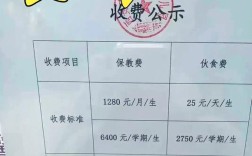 收费公示
收费项目 保教费 伙食费
收费标准 1280 元/月/生 25 元/天/生
6400 元/学期/生 2750 元/学期/生